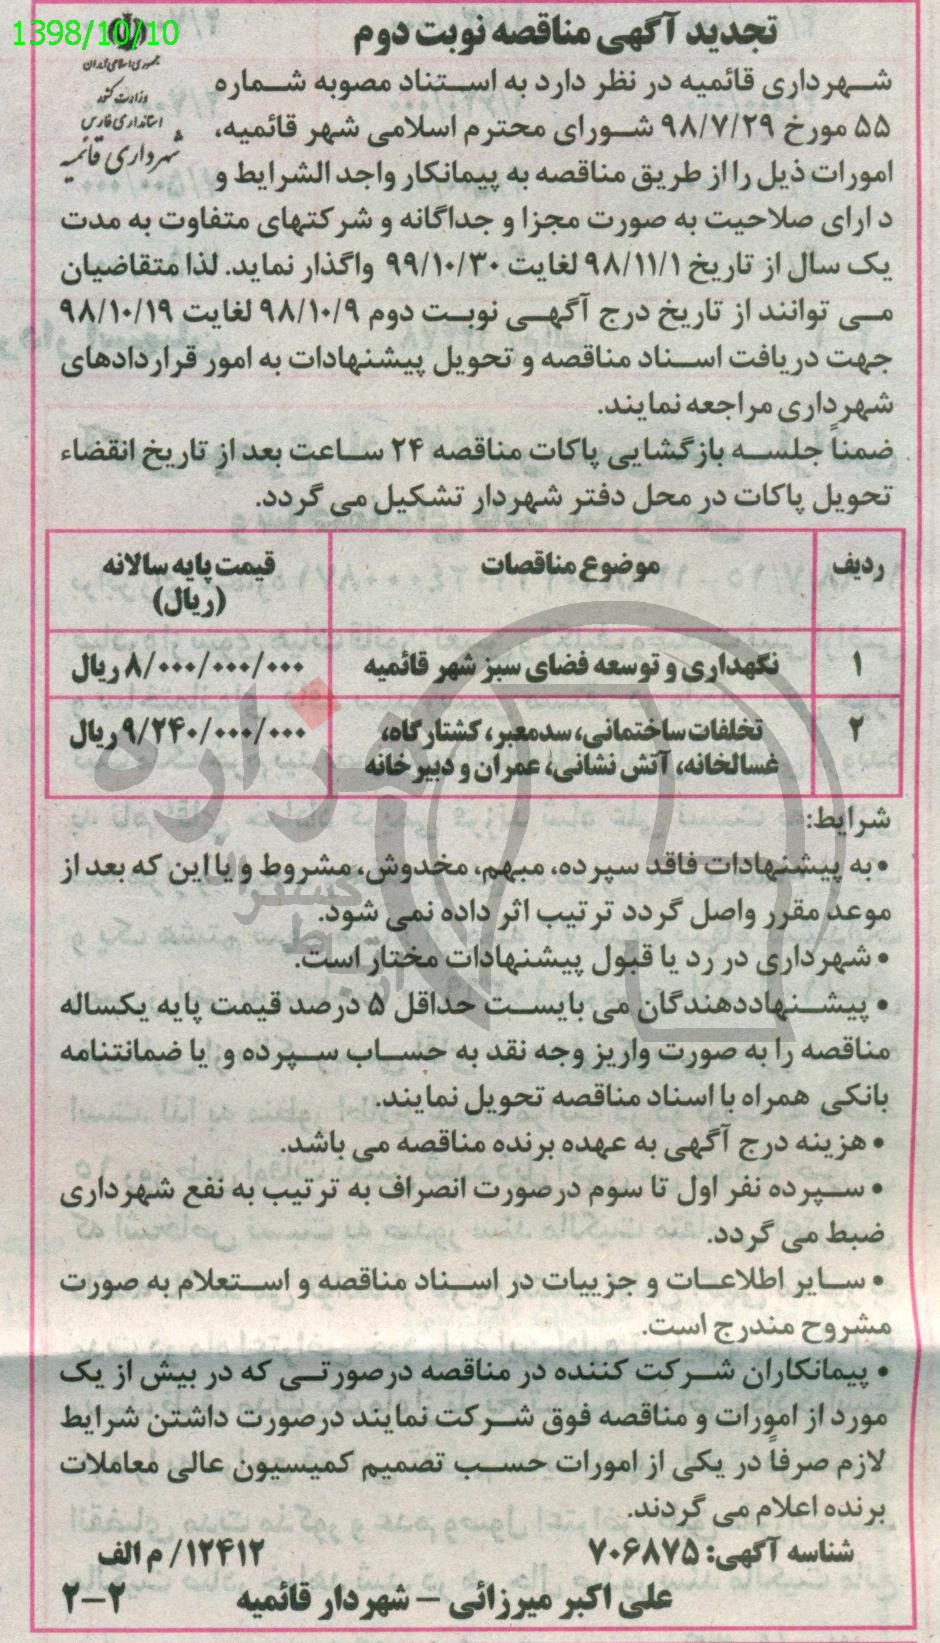 1398/10/10
تجدید آگهی مناقصه نوبت دوم
جمهوری اسلامی ایران
وزارت کشور
استانداری فارس
شهرداری قائمیه
شهرداری قائمیه در نظر دارد به استناد مصوبه شماره
۵۵ مورخ ۹۸/۷/۲۹ شورای محترم اسلامی شهر قائمیه،
امورات ذیل را از طریق مناقصه به پیمانکار واجد الشرایط و
دارای صلاحیت به صورت مجزا و جداگانه و شرکتهای متفاوت به مدت
یک سال از تاریخ ۹۸/۱۱/۱ لغایت ۹۹/۱۰/۳۰ واگذار نماید. لذا متقاضیان
می توانند از تاریخ درج آگهی نوبت دوم ۹۸/۱۰/۹ لغایت ۹۸/۱۰/۱۹
جهت دریافت اسناد مناقصه و تحویل پیشنهادات به امور قراردادهای
شهرداری مراجعه نمایند.
ضمناً جلسه بازگشایی پاکات مناقصه ۲۴ ساعت بعد از تاریخ انقضاء
تحویل پاکات در محل دفتر شهردار تشکیل می گردد.
ردیف موضوع مناقصات قیمت پایه سالانه
(ریال)
۱ نگهداری و توسعه فضای سبز شهر قائمیه ۸/۰۰۰/۰۰۰/۰۰۰ ریال
۲ تخلفات ساختمانی، سدمعبر، کشتارگاه، ۹/۲۴۰/۰۰۰/۰۰۰ ریال
غسالخانه، آتش نشانی، عمران و دبیرخانه
شرایط:
• به پیشنهادات فاقد سپرده، مبهم، مخدوش، مشروط و یا این که بعد از
موعد مقرر واصل گردد ترتیب اثر داده نمی شود.
• شهرداری در رد یا قبول پیشنهادات مختار است.
• پیشنهاددهندگان می بایست حداقل ۵ درصد قیمت پایه یکساله
مناقصه را به صورت واریز وجه نقد به حساب سپرده و یا ضمانتنامه
بانکی همراه با اسناد مناقصه تحویل نمایند.
• هزینه درج آگهی به عهده برنده مناقصه می باشد.
• سپرده نفر اول تا سوم درصورت انصراف به ترتیب به نفع شهرداری
ضبط می گردد.
• سایر اطلاعات و جزییات در اسناد مناقصه و استعلام به صورت
مشروح مندرج است.
• پیمانکاران شرکت کننده در مناقصه درصورتی که در بیش از یک
مورد از امورات و مناقصه فوق شرکت نمایند درصورت داشتن شرایط
لازم صرفاً در یکی از امورات حسب تصمیم کمیسیون عالی معاملات
برنده اعلام می گردند.
شناسه آگهی: ۷۰۶۸۷۵ ۱۲۴۱۲/ م الف
علی اکبر میرزائی – شهردار قائمیه ۲–۲